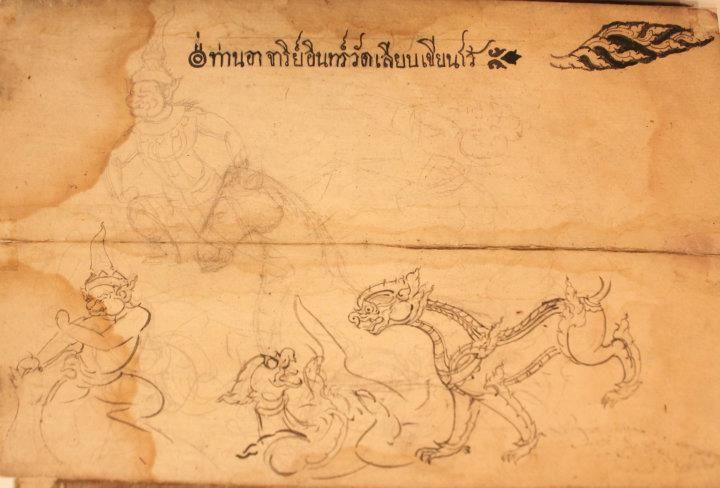 ๏ ท่านอาจาริย์อินทร์วัดเลียบเขียนไว้ ๛